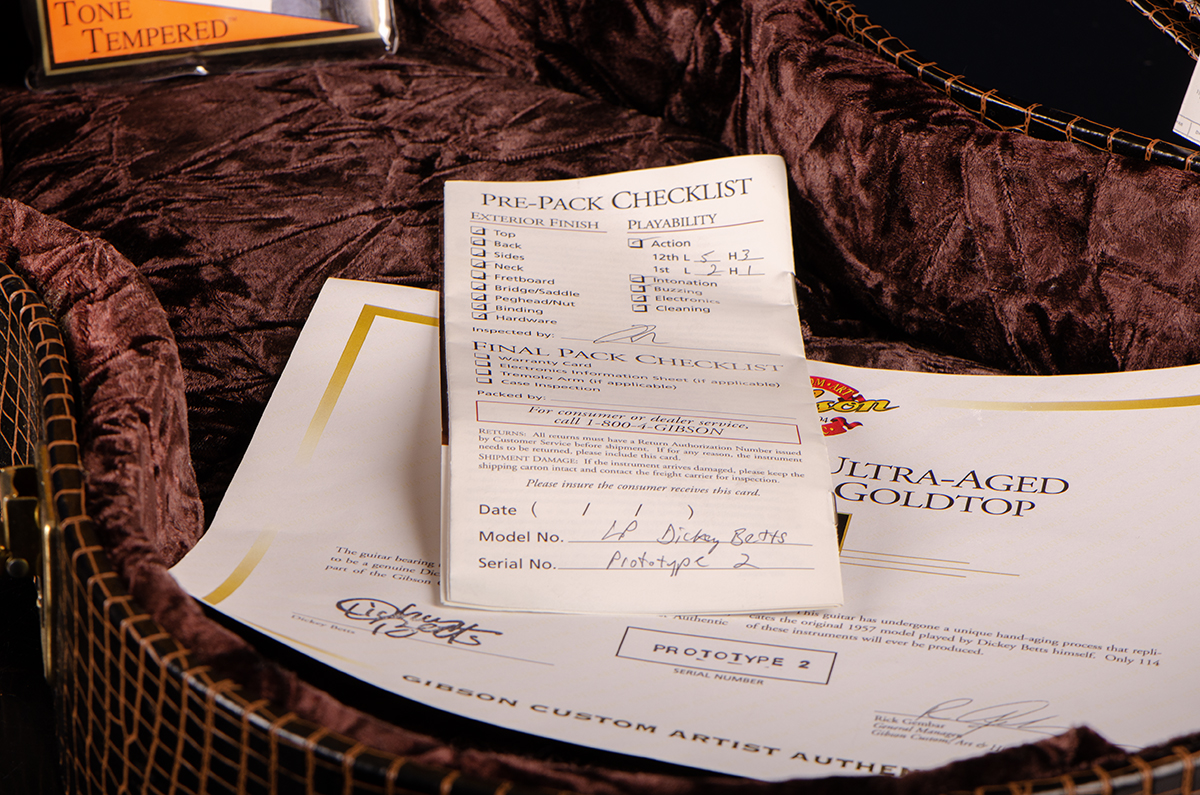 TONE
TEMPERED™
PRE-PACK CHECKLIST
EXTERIOR FINISH
Top
Back
Sides
Neck
Fretboard
Bridge/Saddle
Peghead/Nut
Binding
Hardware
PLAYABILITY
Action
12th L 5 H 3
1st L 2 H 1
Intonation
Buzzing
Electronics
Cleaning
Inspected by:
FINAL PACK CHECKLIST
Warranty Card
Electronics Information Sheet (if applicable)
Tremolo Arm (if applicable)
Case Inspection
Packed by:
For consumer or dealer service,
call 1-800-4-GIBSON
RETURNS: All returns must have a Return Authorization Number issued
by Customer Service before shipment. If for any reason, the instrument
needs to be returned, please include this card.
SHIPMENT DAMAGE: If the instrument arrives damaged, please keep the
shipping carton intact and contact the freight carrier for inspection.
Please insure the consumer receives this card.
Date ( / / )
Model No. LP Dickey Betts
Serial No. Prototype 2
ULTRA-AGED
GOLDTOP
The guitar bearing
to be a genuine Dic
part of the Gibson
Dickey Betts
Authentic
This guitar has undergone a unique hand-aging process that repli-
cates the original 1957 model played by Dickey Betts himself. Only 114
of these instruments will ever be produced.
PROTOTYPE 2
SERIAL NUMBER
Rick Gembar
General Manager
Gibson Custom, Art & H
GIBSON CUSTOM ARTIST AUTHEN